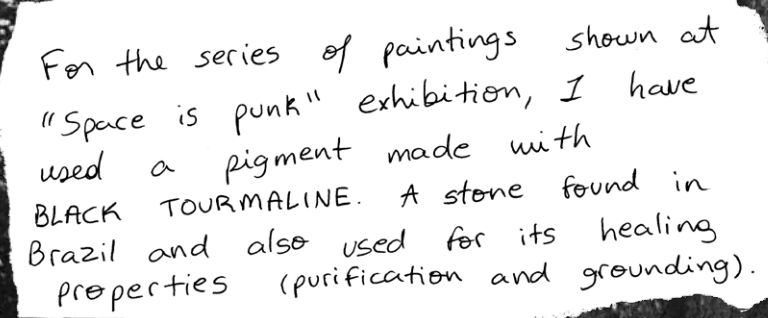 For the series of paintings shown at
"Space is punk" exhibition, I have
used a pigment made with
BLACK TOURMALINE. A stone found in
Brazil and also used for its healing
properties (purification and grounding).